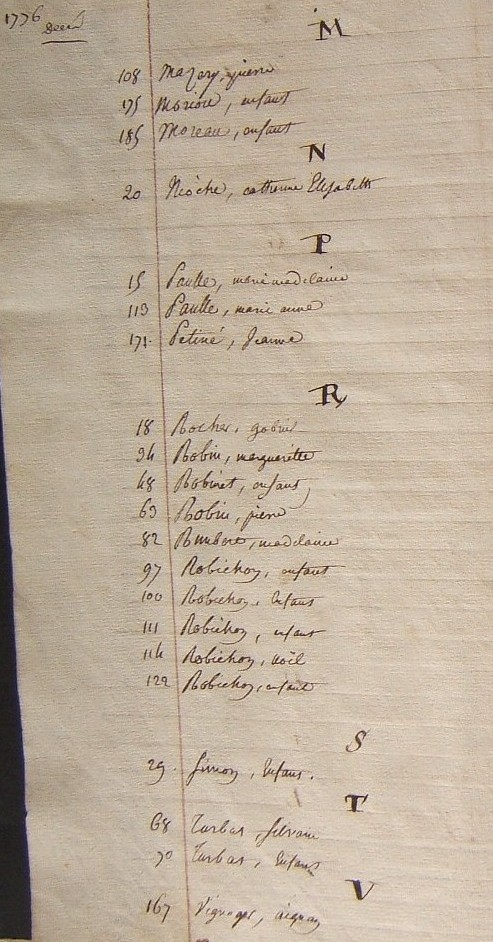 1776
Deces
M
108 Mazery, pierre
175 Moriou, enfant
185 Moreau, enfant
N
20 Nioche, catherine Elizabeth
P
15 Paulle, marie madelaine
113 Paulle, marie anne
171 Petiné, Jeanne
R
18 Rocher, gabriel
34 Robin, margueritte
48 Robinet, enfant
63 Robin, pierre
82 madelaine
97 Robichon, enfant
100 Robichon, Enfant
111 Robichon, enfant
114 Robichon, noël
122 Robichon, enfant
S
29 Simon, Enfant.
T
68 Turbat, Silvain
70 Turbat, Enfant
V
167